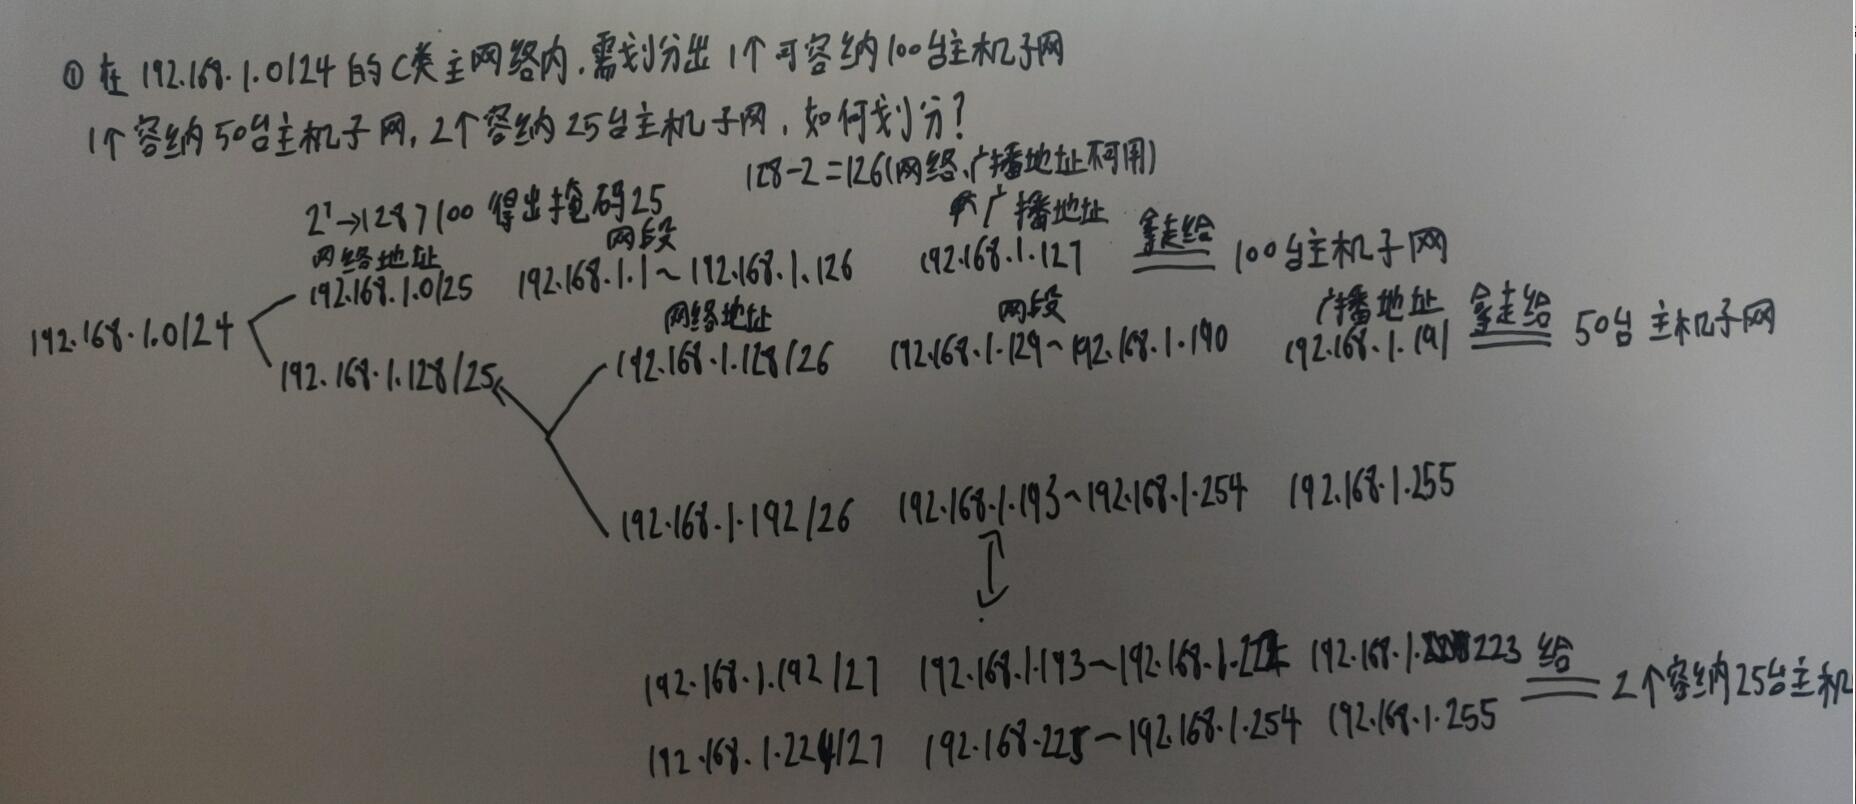 ① 在 192.168.1.0/24 的C类主网络内,需划分出 1个可容纳100台主机子网
1个容纳50台主机子网,2个容纳25台主机子网,如何划分?
128-2=126(网络、广播地址不可用)
2⁷→128>100 得出掩码25
网络地址 网段 广播地址
192.168.1.0/25 192.168.1.1~192.168.1.126 192.168.1.127 拿走给 100台主机子网
192.168.1.0/24
网络地址 网段 广播地址
192.168.1.128/25 192.168.1.128/26 192.168.1.129~192.168.1.190 192.168.1.191 拿走给 50台主机子网
192.168.1.192/26 192.168.1.193~192.168.1.254 192.168.1.255
192.168.1.192/27 192.168.1.193~192.168.1. 192.168.1.223 给 2个容纳25台主机
192.168.1.224/27 192.168.225~192.168.1.254 192.168.1.255